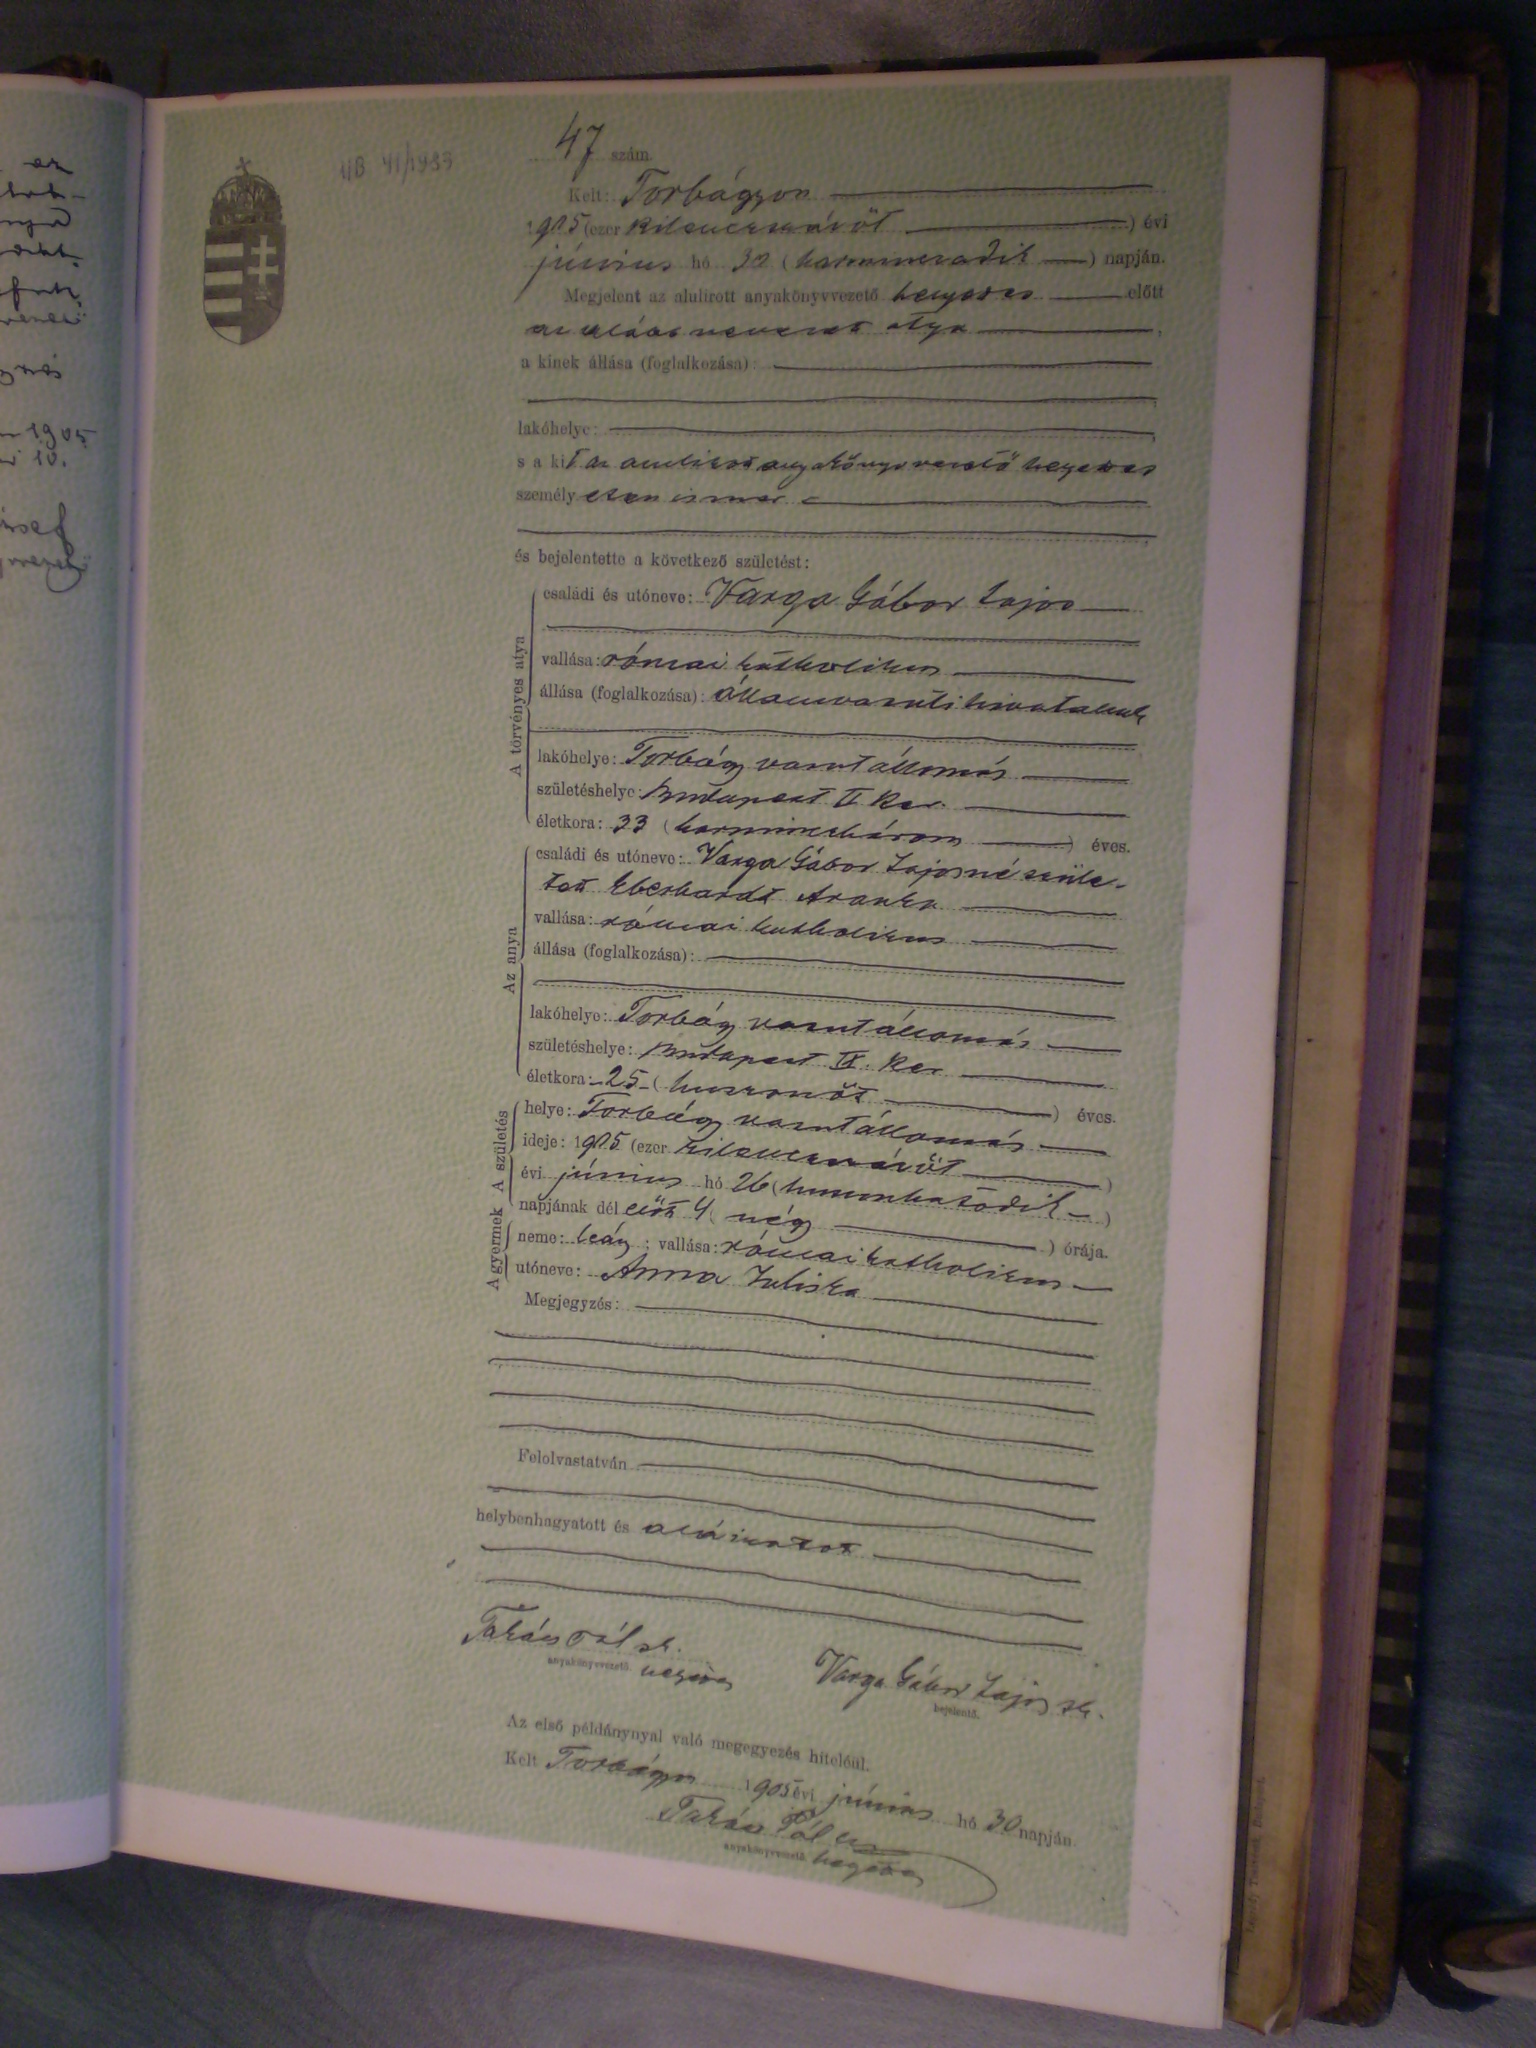 47 szám.
Kelt: Torbágyon
1905 (ezer kilenczszázöt) évi
június hó 30 (harminczadik) napján.
Megjelent az alulirott anyakönyvvezető helyettes előtt
az alább nevezett atya,
a kinek állása (foglalkozása):
lakóhelye:
s a kit az alulirott anyakönyvvezető helyettes
személyesen ismer
és bejelentette a következő születést:
A törvényes atya
családi és utóneve: Varga Gábor Lajos
vallása: római katholikus
állása (foglalkozása): államvasuti hivatalnok
lakóhelye: Torbágy vasutállomás
születéshelye: Budapest II. ker.
életkora: 33 (harminczhárom) éves.
Az anya
családi és utóneve: Varga Gábor Lajosné szüle-
tett Eberhardt Aranka
vallása: római katholikus
állása (foglalkozása):
lakóhelye: Torbágy vasutállomás
születéshelye: Budapest IX. ker
életkora: 25 (huszonöt) éves.
A születés
helye: Torbágy vasutállomás
ideje: 1905 (ezer kilenczszázöt)
évi június hó 26 (huszonhatodik)
napjának délelőtt 4 (négy) órája.
A gyermek
neme: leány; vallása: római katholikus
utóneve: Anna Juliska
Megjegyzés:
Felolvastatván
helybenhagyatott és aláiratott
Takács Pál sk. Varga Gábor Lajos sk.
anyakönyvvezető helyettes bejelentő.
Az első példánynyal való megegyezés hiteléül.
Kelt Torbágyon 1905 évi június hó 30 napján.
Takács Pál
anyakönyvvezető helyettes